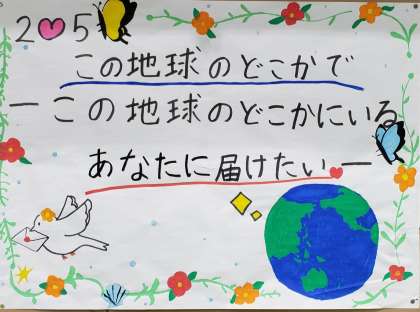 2♥5
この地球のどこかで
ーこの地球のどこかにいる
あなたに届けたい♥ー